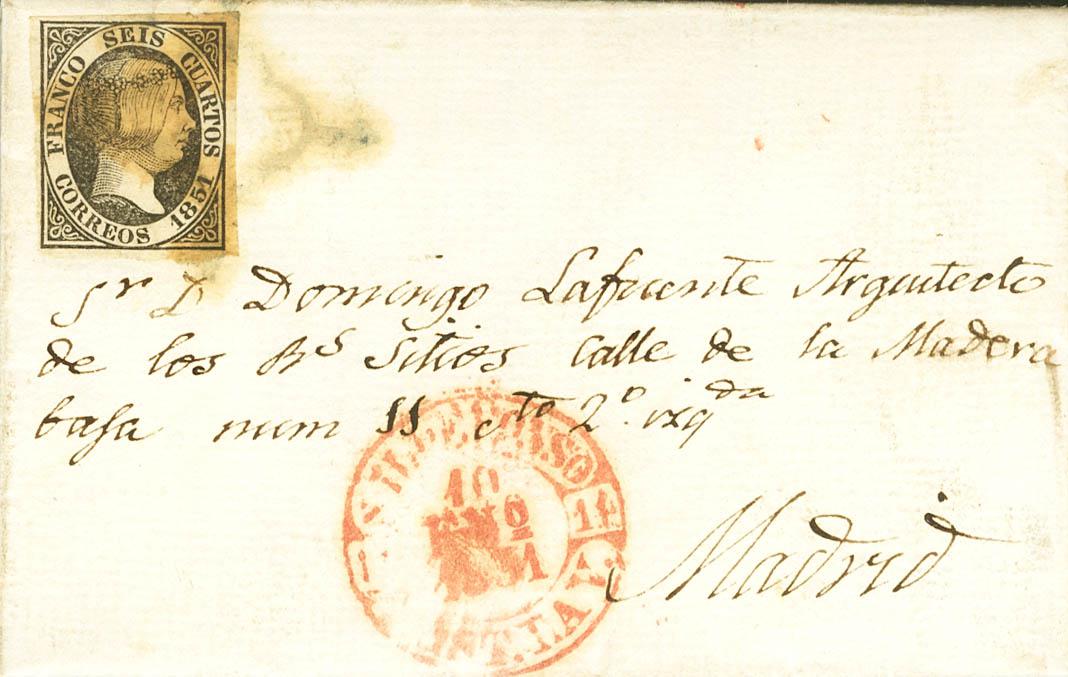 FRANCO SEIS CUARTOS
CORREOS 1851
Sr D Domingo Lafuente Arquitecto
de los Rs Sitios Calle de la Madera
baja num 11 cto 2º izqda
S. ILDEFONSO
10
ENO
1851
Madrid